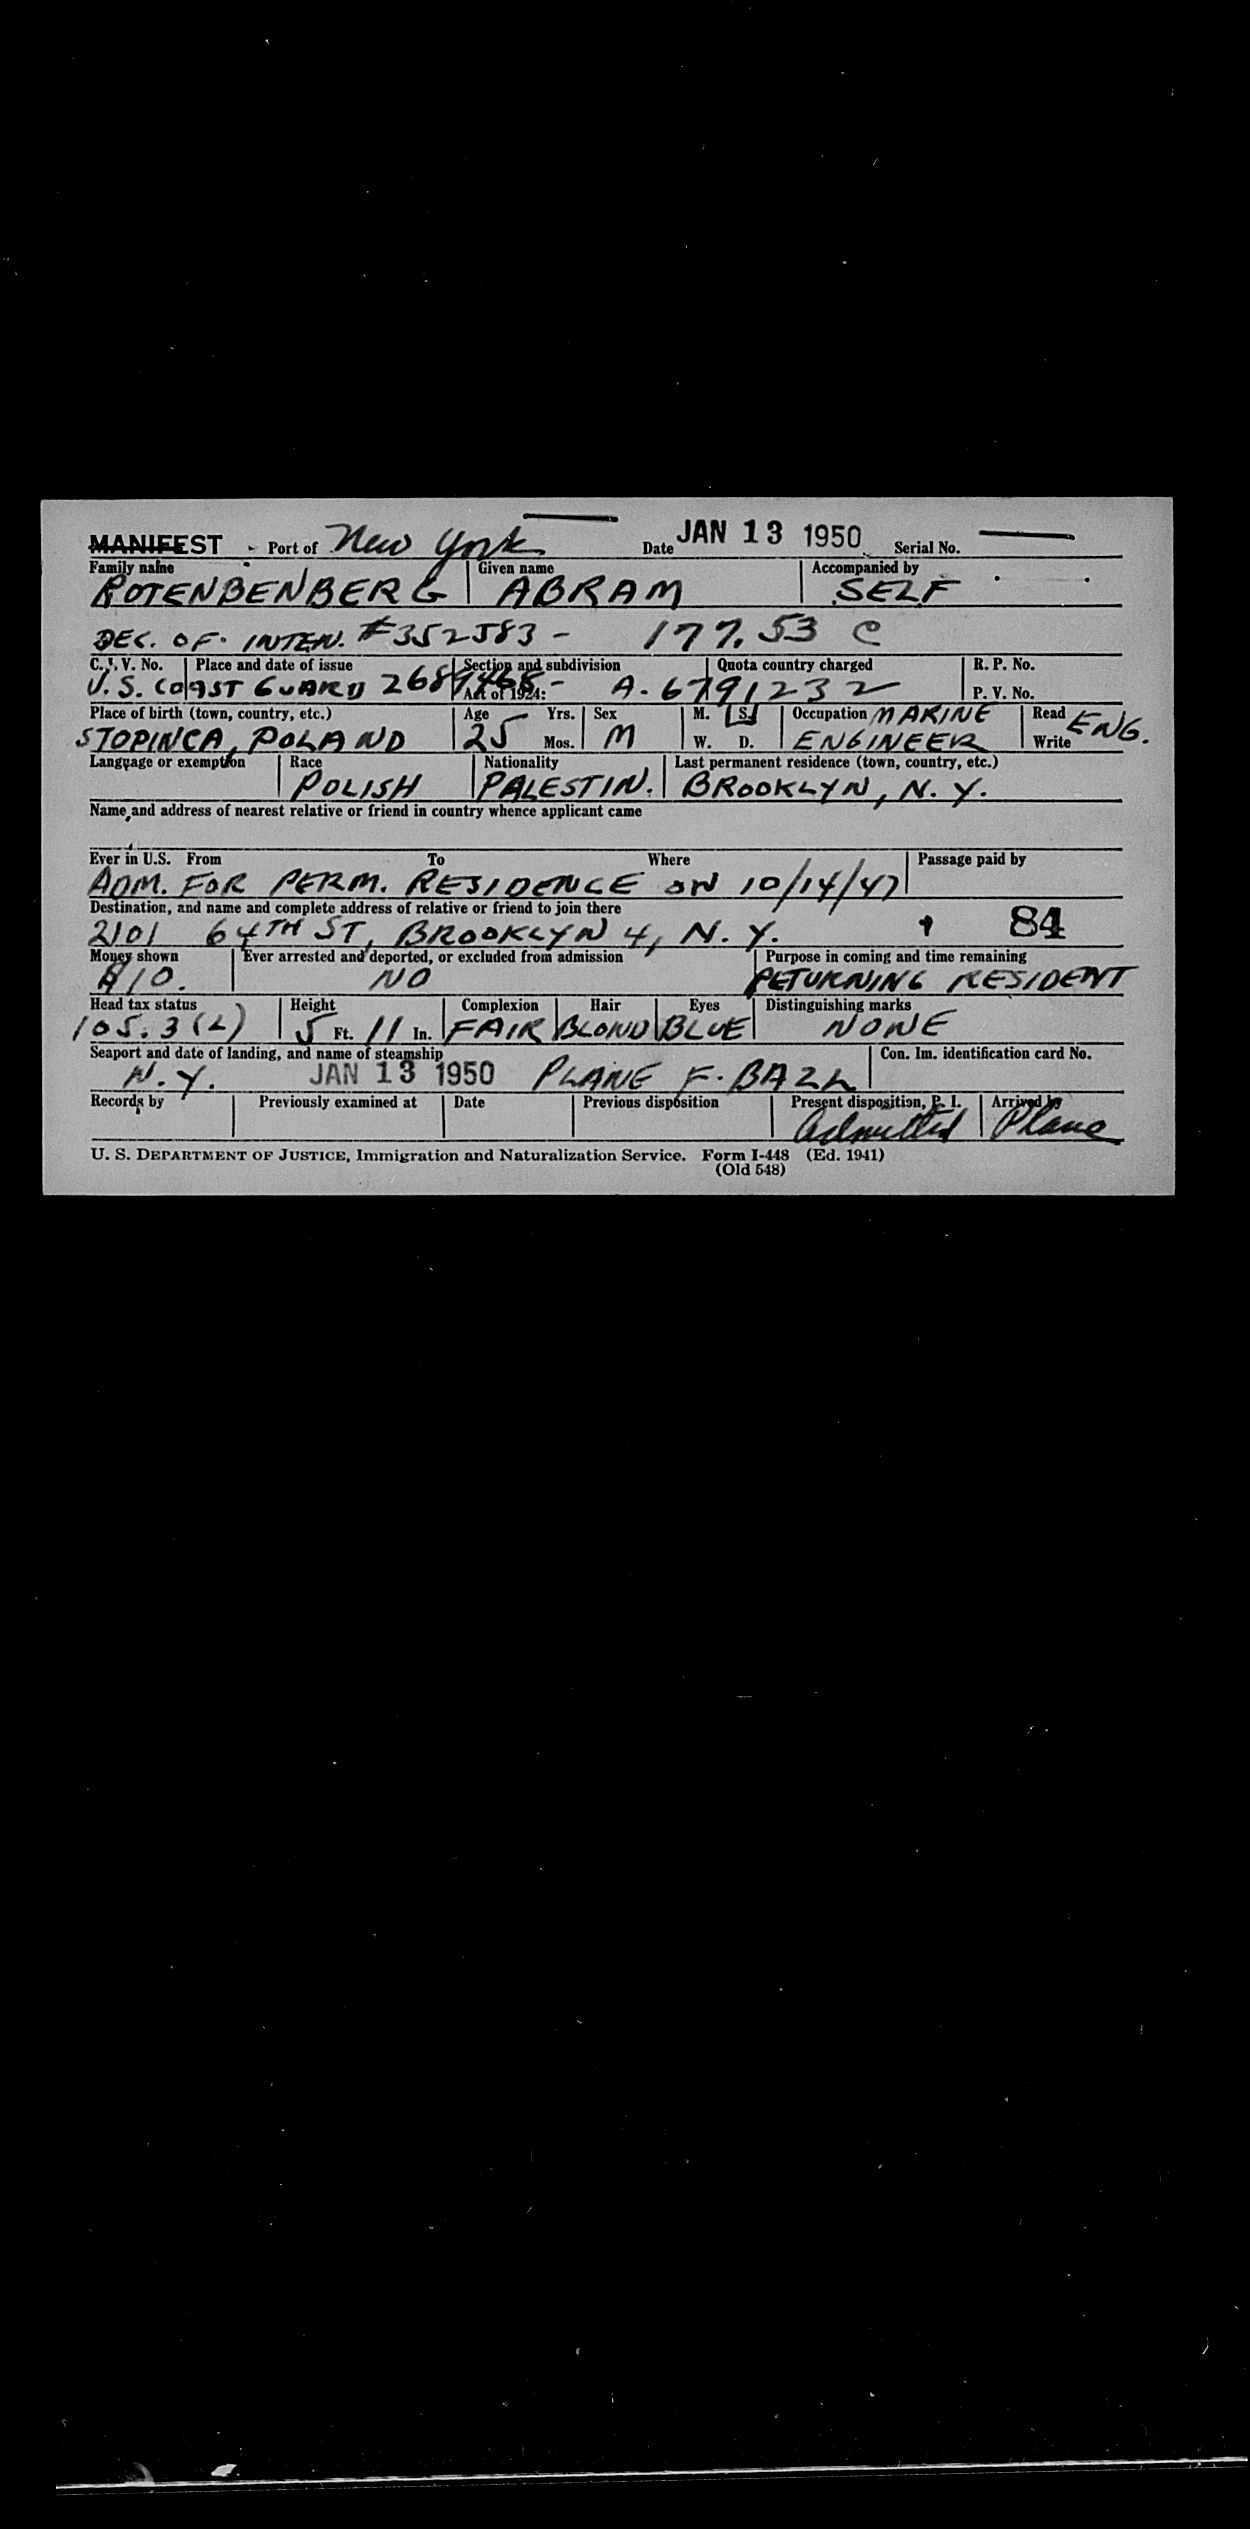 MANIFEST Port of New York Date JAN 13 1950 Serial No.
Family name Given name Accompanied by
ROTENBENBERG ABRAM SELF
DEC. OF. INTEN. #352583 - 177.53 C
C. I. V. No. Place and date of issue Section and subdivision Quota country charged R. P. No.
U.S. COAST GUARD 2689468- Act of 1924: A-6791232 P. V. No.
Place of birth (town, country, etc.) Age Yrs. Sex M. S. Occupation MARINE Read ENG.
STOPINCA, POLAND 25 Mos. M W. D. ENGINEER Write
Language or exemption Race Nationality Last permanent residence (town, country, etc.)
POLISH PALESTIN. BROOKLYN, N.Y.
Name and address of nearest relative or friend in country whence applicant came
Ever in U.S. From To Where Passage paid by
ADM. FOR PERM. RESIDENCE ON 10/14/47
Destination, and name and complete address of relative or friend to join there
2101 64TH ST, BROOKLYN 4, N.Y. 84
Money shown Ever arrested and deported, or excluded from admission Purpose in coming and time remaining
$10. NO RETURNING RESIDENT
Head tax status Height Complexion Hair Eyes Distinguishing marks
105.3(2) 5 Ft. 11 In. FAIR BLOND BLUE NONE
Seaport and date of landing, and name of steamship Con. Im. identification card No.
N.Y. JAN 13 1950 PLANE F. BAZL
Records by Previously examined at Date Previous disposition Present disposition, P. I. Arrived by
Admitted Plane
U. S. DEPARTMENT OF JUSTICE, Immigration and Naturalization Service. Form I-448 (Ed. 1941)
(Old 548)